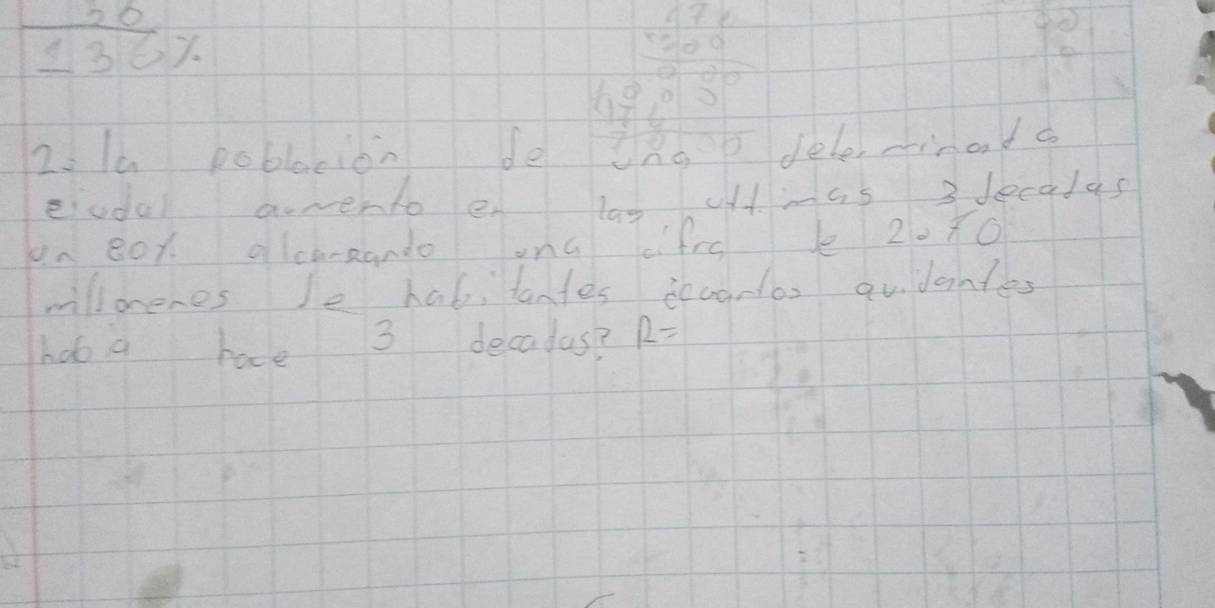 36
136%
2. la poblacion de una determinada
ciudal aumento en las ultimas 3 decadas
un 80% alcanzando una cifra de 2.70
milloneres de habitantes ¿cuantos avidantes
haba hace 3 decadas? R=